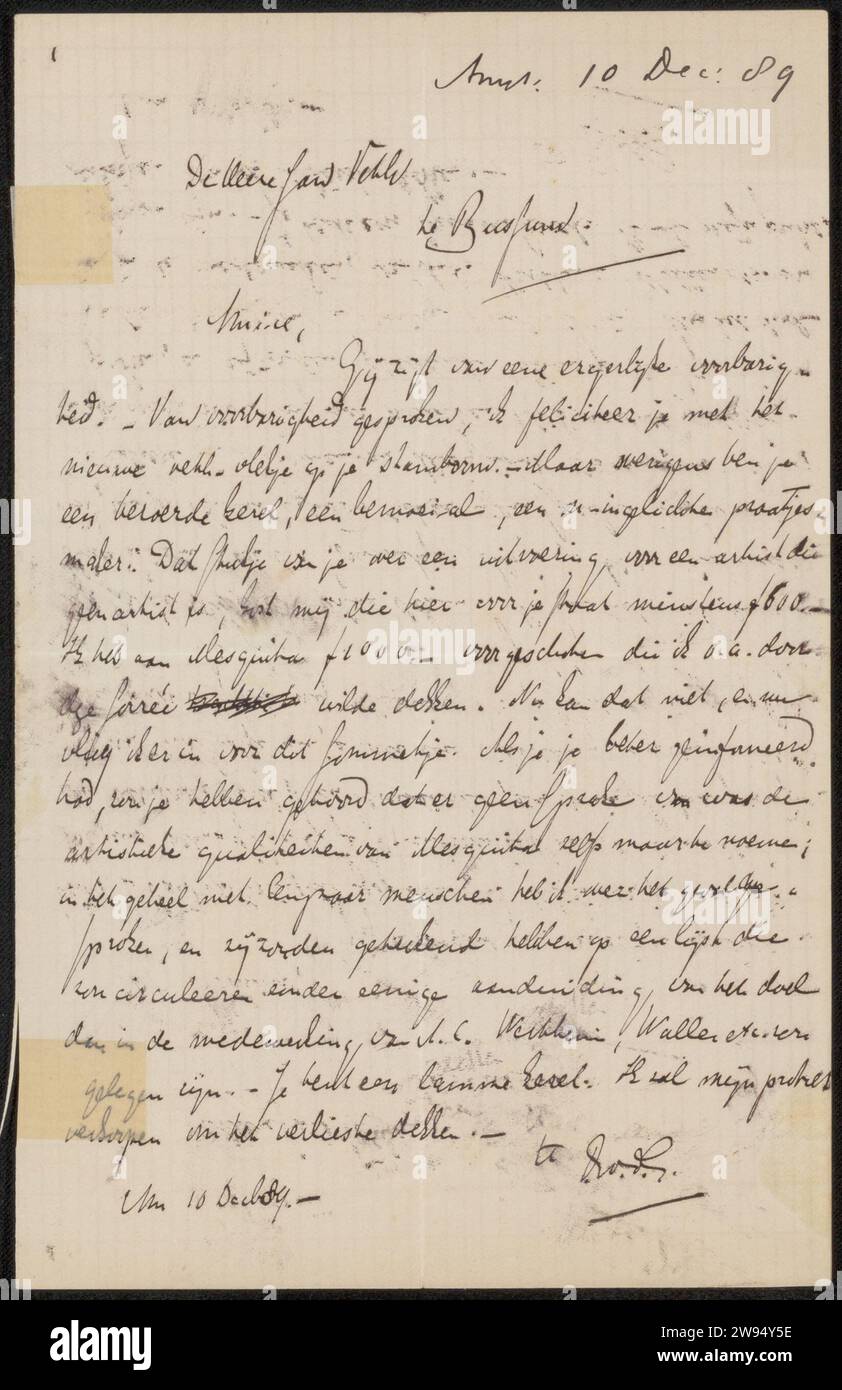 Amst. 10 Dec. 89
De Heer Jan Veth
te Bussum.
Amice,
Gij zijt van eene ergerlijke voorbarig-
heid. – Van voorbarigheid gesproken, ik feliciteer je met het
nieuwe Veth- op je stamboom. – Maar overigens ben je
een beroerde kerel, een bemoeial, een praatjes-
maker. Dat stukje van je over een uitvoering voor een artist die
geen artist is, kost mij die hier voor je staat minstens f 600.–
Ik heb aan Mesquita f 1000.– voorgeschoten die ik o.a. door
soirée wilde dekken. Nu kan dat niet, en nu
vlieg ik er in voor dat sommetje. Als je je beter geinformeerd
had, zou je hebben gehoord dat er geen sprake van was de
artistieke qualiteiten van Mesquita zelfs maar te noemen;
in het geheel niet. Een paar menschen heb ik over het geval ge-
sproken, en zij zouden geteekend hebben op een lijst die
zou circuleeren zonder eenige aanduiding van het doel
dan in de medewerking van A.C. Wertheim, Waller etc. zou
gelegen zijn. – Je bent een lamme kerel. Ik zal mijn portret
verkoopen om het verlies te dekken. –
10 Dec 89. –
alamy
Image ID: 2W94Y5E
www.alamy.com